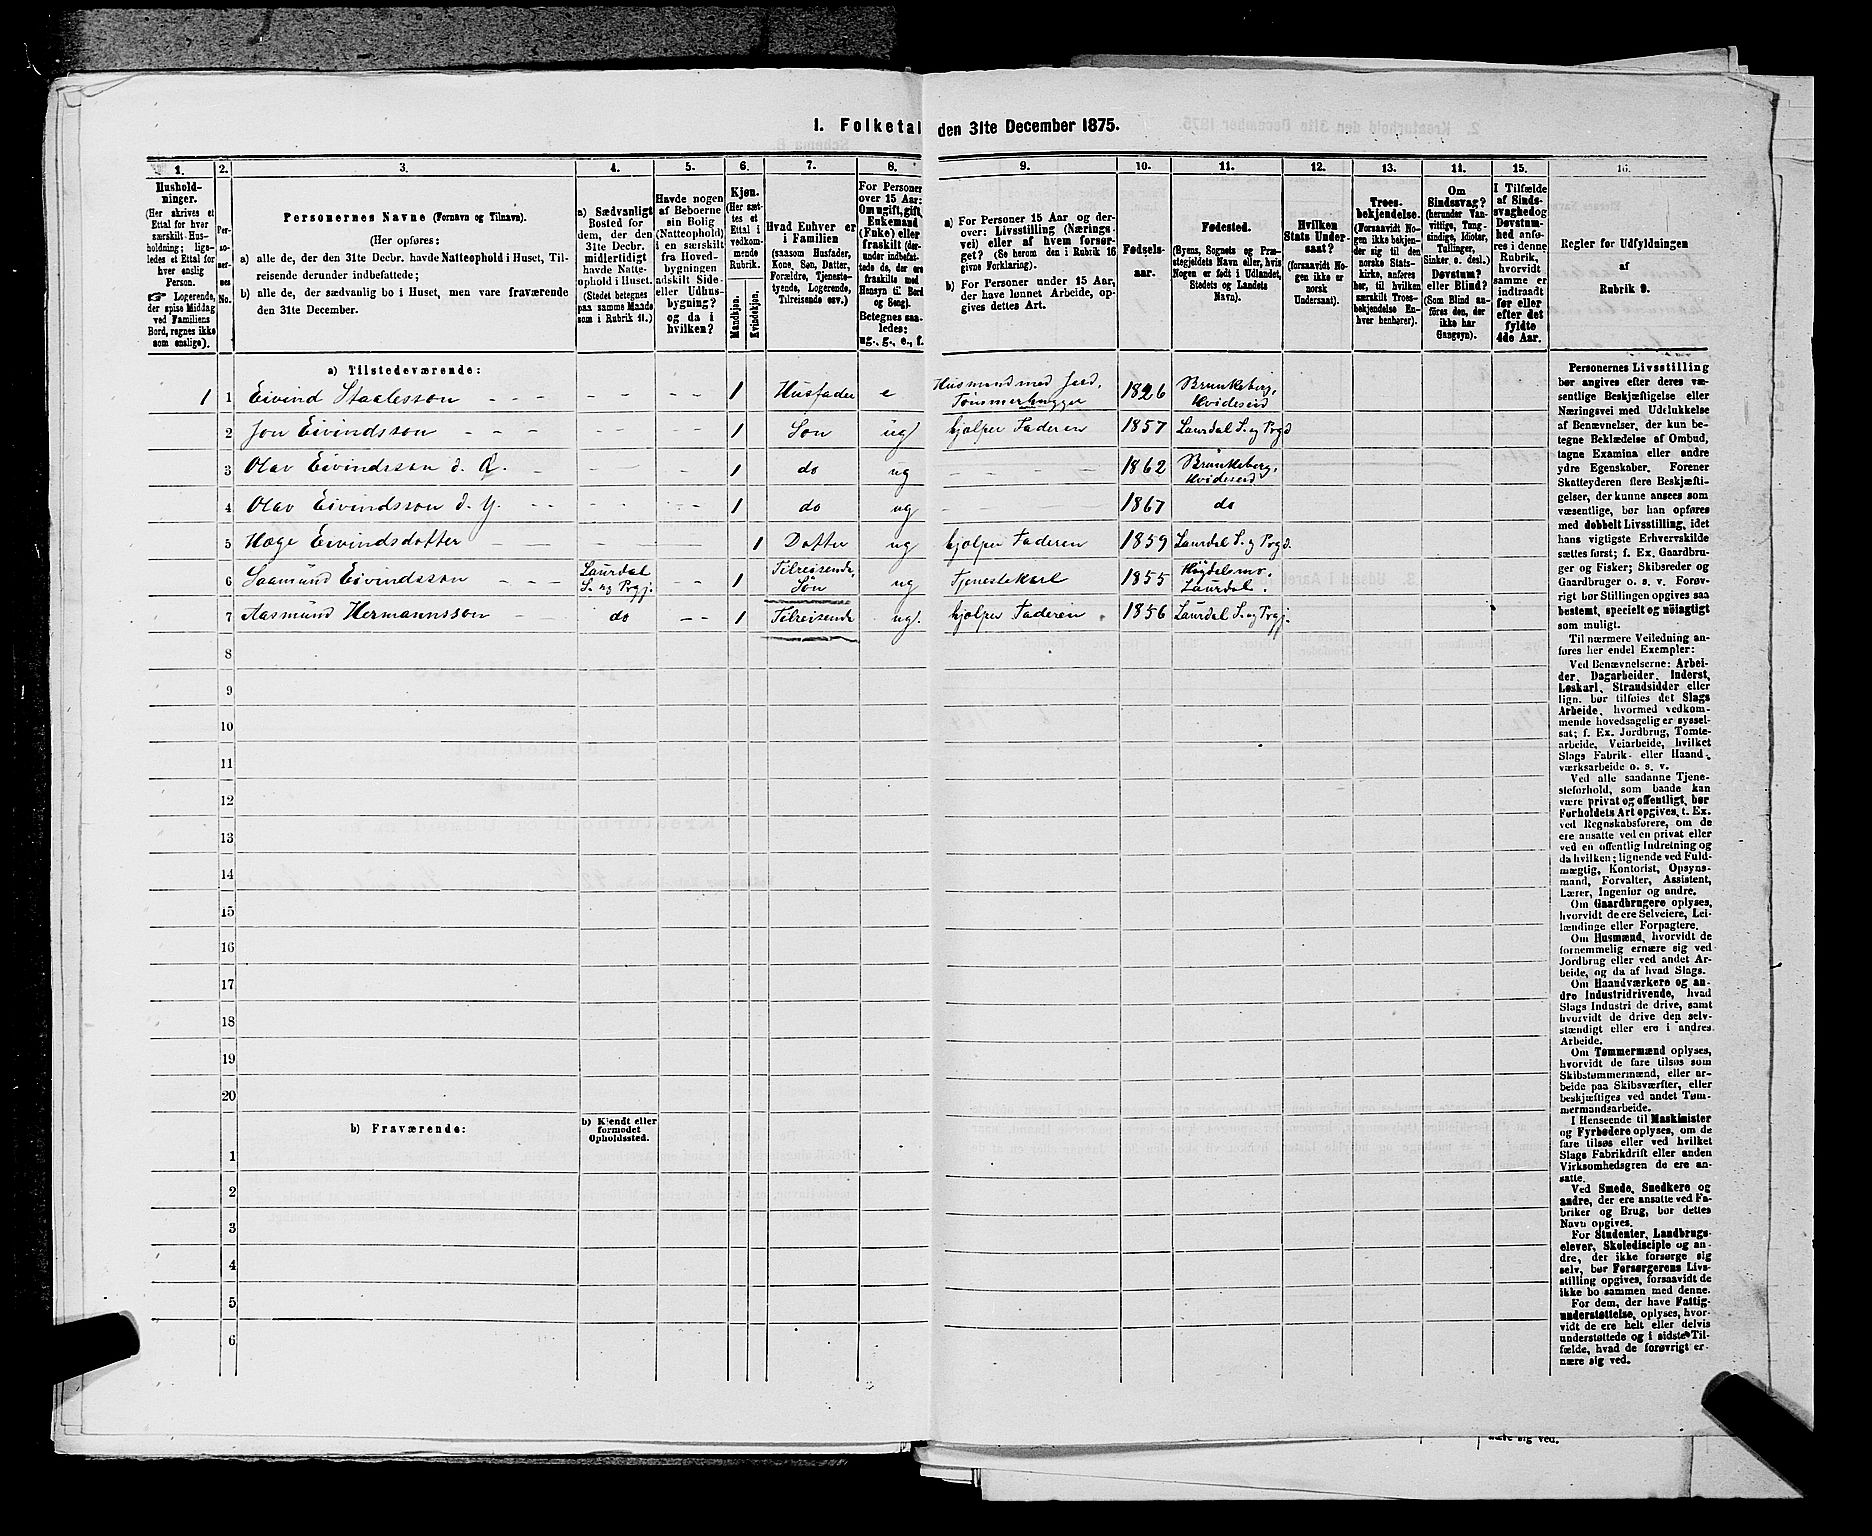 1. Folketal den 31te December 1875.
1. 2. 3. 4. 5. 6. 7. 8. 9. 10. 11. 12. 13. 14. 15. 16.
Hushold-
ninger.
(Her skrives et
Ettal for hver
særskilt Hus-
holdning; lige-
ledes et Ettal for
hver enslig
Person.
☞ Logerende,
der spise Middag
ved Familiens
Bord, regnes ikke
som enslige).
Per-
so-
ner-
nes
No.
Personernes Navne (Fornavn og Tilnavn).
(Her opføres:
a) alle de, der den 31te Decbr. havde Natteophold i Huset, Til-
reisende derunder indbefattede;
b) alle de, der sædvanlig bo i Huset, men vare fraværende
den 31te December.
a) Sædvanligt
Bosted for
dem, der den
31te Decbr.
midlertidigt
havde Natte-
ophold i Huset.
(Stedet betegnes
paa samme Maade
som i Rubrik 11.)
Havde nogen
af Beboerne
sin Bolig
(Natteophold)
i en særskilt
fra Hoved-
bygningen
adskilt Side-
eller Udhus-
bygning?
og da i
hvilken?
Kjøn.
(Her sæt-
tes et
Ettal i
vedkom-
mende
Rubrik.
Mandkjøn.
Kvindekjøn.
Hvad Enhver er
i Familien
(saasom Husfader,
Kone, Søn, Datter,
Forældre, Tjeneste-
tyende, Logerende,
Tilreisende osv.)
For Personer
over 15 Aar:
Om ugift, gift,
Enkemand
(Enke) eller
fraskilt (der-
under indbefat-
tede de, der ere
fraskilte med
Hensyn til Bord
og Seng).
Betegnes saa-
ledes:
ug., g., e., f.
a) For Personer 15 Aar og der-
over: Livsstilling (Nærings-
vei) eller af hvem forsør-
get? (Se herom den i Rubrik 16
givne Forklaring).
b) For Personer under 15 Aar,
der have lønnet Arbeide, op-
gives dettes Art.
Fødsels-
aar.
Fødested.
(Byens, Sognets og Præ-
stegjeldets Navn eller, hvis
Nogen er født i Udlandet,
Stedets og Landets
Navn).
Hvilken
Stats Under-
saat?
(forsaavidt No-
gen ikke er
norsk
Undersaat).
Troes-
bekjendelse.
(Forsaavidt No-
gen ikke bekjen-
der sig til den
norske Stats-
kirke, anføres
her, til hvilken
særskilt Troes-
bekjendelse En-
hver henhører).
Om
Sindssvag?
(herunder Van-
vittige, Tung-
sindige, Idioter,
Tullinger,
Sinker o. desl.)
Døvstum?
eller Blind?
(Som Blind an-
føres den, der
ikke har
Gangsyn).
I Tilfælde
af Sinds-
svaghed og
Døvstum-
hed anfø-
res i denne
Rubrik,
hvorvidt
samme er
indtraadt
før eller
efter det
fyldte
4de Aar.
Regler for Udfyldningen
af
Rubrik 9.
a) Tilstedeværende:
1 1 Eivind Staalesson - - - - - 1 Husfader e Husmand med Jord, Tømmerhugger 1826 Brunkeberg, Hvideseid
2 Jon Eivindsson - - - 1 Søn ug hjælper Faderen 1857 Laurdal S. og Prgd
3 Olav Eivindsson d. Æ. - - 1 do ug - - - 1862 Brunkeberg, Hvideseid
4 Olav Eivindsson d. Y. - - 1 do ug - - - 1867 do
5 Hæge Eivindsdatter - - - 1 Datter ug hjælper Faderen 1859 Laurdal S. og Prgd.
6 Saamund Eivindsson - - - Laurdal S. og Prgj. - - 1 Tilreisende, Søn ug Tjenestekarl 1855 Høydalsmo. Laurdal.
7 Aasmund Hermannsson - do - - 1 Tilreisende ug. hjælper Faderen 1856 Laurdal S. og Prgj.
8
9
10
11
12
13
14
15
16
17
18
19
20
b) Fraværende:
b) Kjendt eller
formodet
Opholdssted.
1
2
3
4
5
6
Personernes Livsstilling
bør angives efter deres væ-
sentlige Beskjæftigelse eller
Næringsvei med Udelukkelse
af Benævnelser, der kun be-
tegne Beklædelse af Ombud,
tagne Examina eller andre
ydre Egenskaber. Forener
Skatteyderen flere Beskjæfti-
gelser, der kunne ansees som
væsentlige, bør han opføres
med dobbelt Livsstilling, idet
hans vigtigste Erhvervskilde
sættes først; f. Ex. Gaardbru-
ger og Fisker; Skibsreder og
Gaardbruger o. s. v. Forøv-
rigt bør Stillingen opgives saa
bestemt, specielt og nöiagtigt
som muligt.
Til nærmere Veiledning an-
føres her endel Exempler:
Ved Benævnelserne: Arbei-
der, Dagarbeider, Inderst,
Løskarl, Strandsidder eller
lign. bør tilføies det Slags
Arbeide, hvormed vedkom-
mende hovedsagelig er syssel-
sat; f. Ex. Jordbrug, Tomte-
arbeide, Veiarbeide, hvilket
Slags Fabrik- eller Haand-
værksarbeide o. s. v.
Ved alle saadanne Tjene-
steforhold, som baade kan
være privat og offentligt, bør
Forholdets Art opgives, t. Ex.
ved Regnskabsførere, om de
ere ansatte ved en privat eller
ved en offentlig Indretning og
da hvilken; lignende ved Fuld-
mægtig, Kontorist, Opsyns-
mand, Forvalter, Assistent,
Lærer, Ingeniør og andre.
Om Gaardbrugere oplyses,
hvorvidt de ere Selveiere, Lei-
lændinge eller Forpagtere.
Om Husmænd, hvorvidt de
fornemmelig ernære sig ved
Jordbrug eller ved andet Ar-
beide, og da af hvad Slags.
Om Haandværkere og an-
dre Industridrivende, hvad
Slags Industri de drive, samt
hvorvidt de drive den selv-
stændigt eller ere i andres
Arbeide.
Om Tømmermænd oplyses,
hvorvidt de fare tilsøs som
Skibstømmermænd, eller ar-
beide paa Skibsværfter, eller
beskjæftiges ved andet Tøm-
mermandsarbeide.
I Henseende til Maskinister
og Fyrbødere oplyses, om de
fare tilsøs eller ved hvilket
Slags Fabrikdrift eller anden
Virksomhedsgren de ere an-
satte.
Ved Smede, Snedkere og
andre, der ere ansatte ved Fa-
briker og Brug, bør dettes
Navn opgives.
For Studenter, Landbrugs-
elever, Skoledisciple og an-
dre, der ikke forsørge sig
selv, bør Forsørgerens Livs-
stilling opgives, forsaavidt de
ikke bo sammen med denne.
For dem, der have Fattig-
understøttelse, oplyses, hvor-
vidt de ere helt eller delvis
understøttede og i sidste Til-
fælde, hvad de forøvrigt er-
nære sig ved.
nære sig ved.